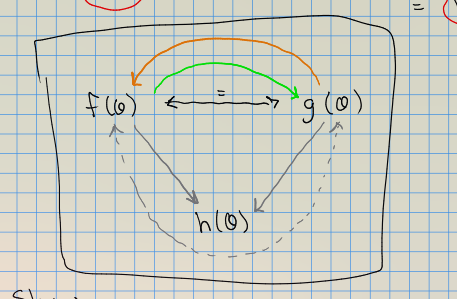 =
=
f(θ) g(θ)
h(θ)